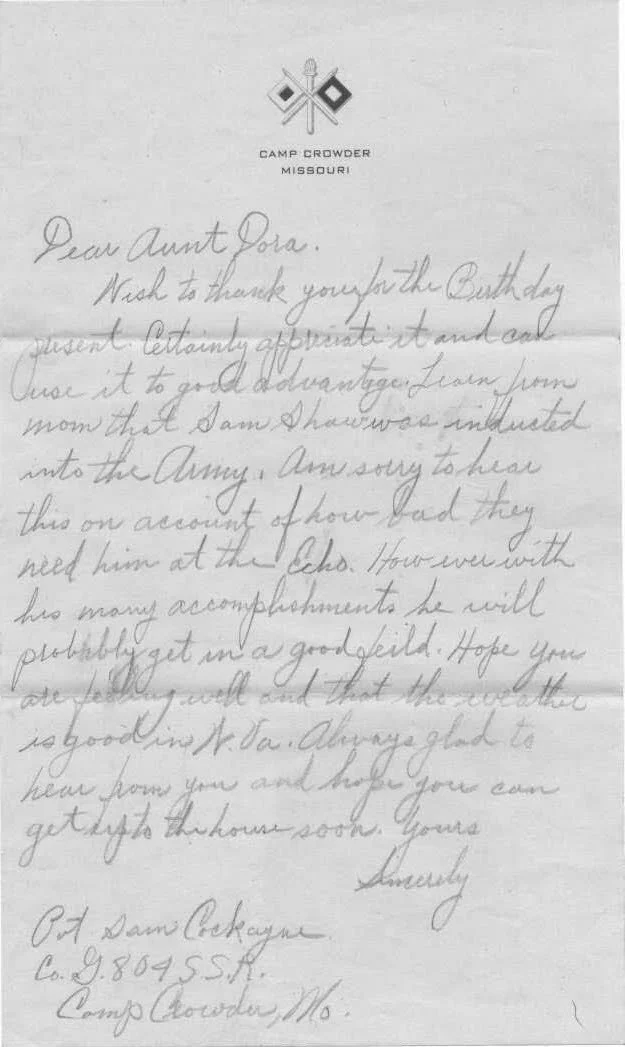 CAMP CROWDER
MISSOURI
Dear Aunt Dora.
Wish to thank you for the Birthday
present. Certainly appreciate it and can
use it to good advantage. Learn from
mom that Sam Shaw was inducted
into the Army. Am sorry to hear
this on account of how bad they
need him at the Echo. How ever with
his many accomplishments he will
probably get in a good feild. Hope you
are feeling well and that the weather
is good in W. Va. Always glad to
hear from you and hope you can
get up to the house soon. Yours
Sincerely
Pvt Sam Cockayne
Co. G. 804 S.S.R.
Camp Crowder, Mo.